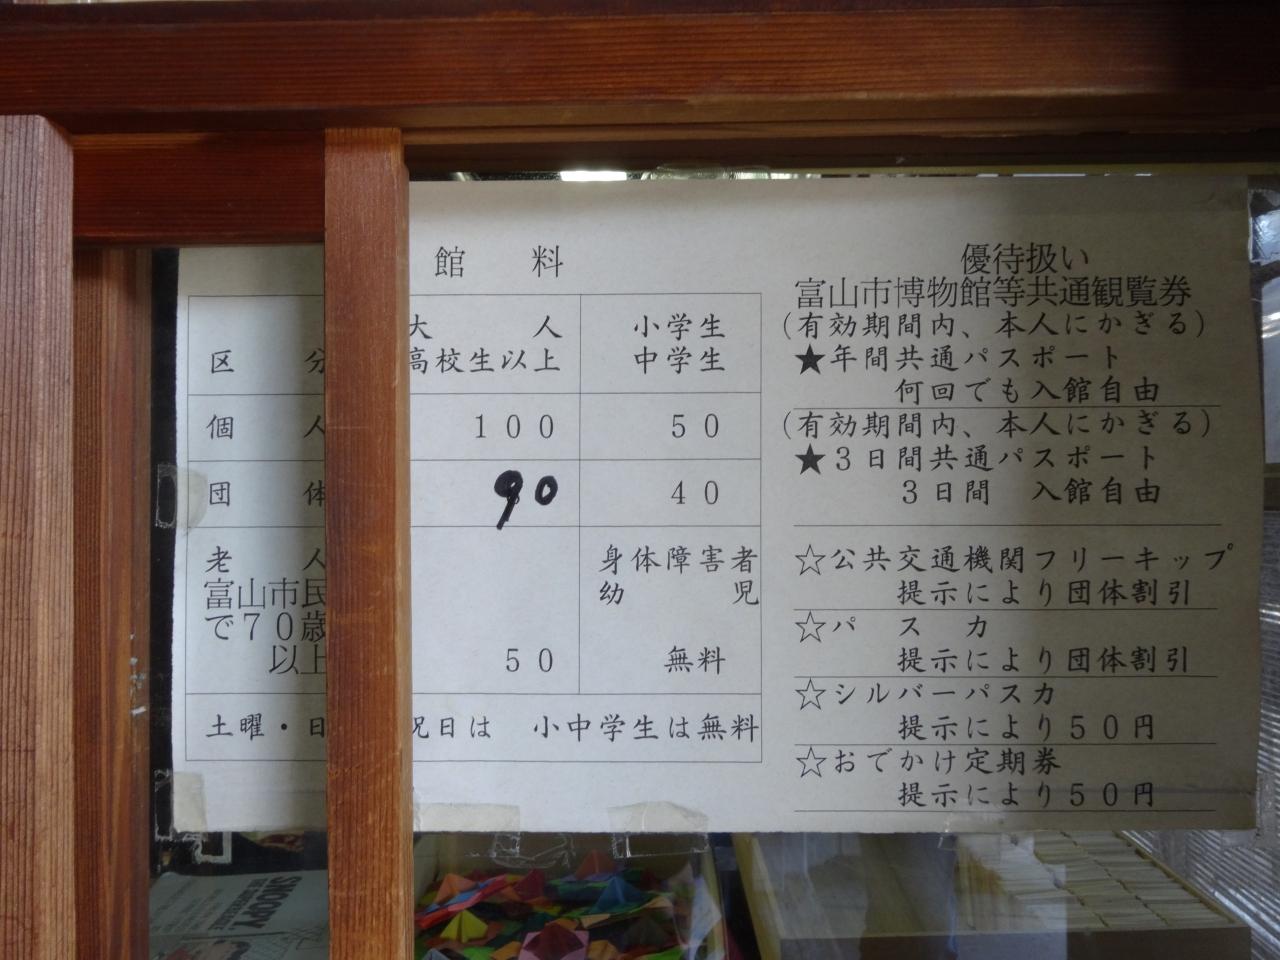 館　料
区　分
大　人
高校生以上
小学生
中学生
個　人
100
50
団　体
90
40
老　人
富山市民
で70歳
以上
50
身体障害者
幼　児
無料
土曜・日
祝日は　小中学生は無料
優待扱い
富山市博物館等共通観覧券
(有効期間内、本人にかぎる)
★年間共通パスポート
何回でも入館自由
(有効期間内、本人にかぎる)
★3日間共通パスポート
3日間　入館自由
☆公共交通機関フリーキップ
提示により団体割引
☆パ　ス　カ
提示により団体割引
☆シルバーパスカ
提示により50円
☆おでかけ定期券
提示により50円
SNOOPY